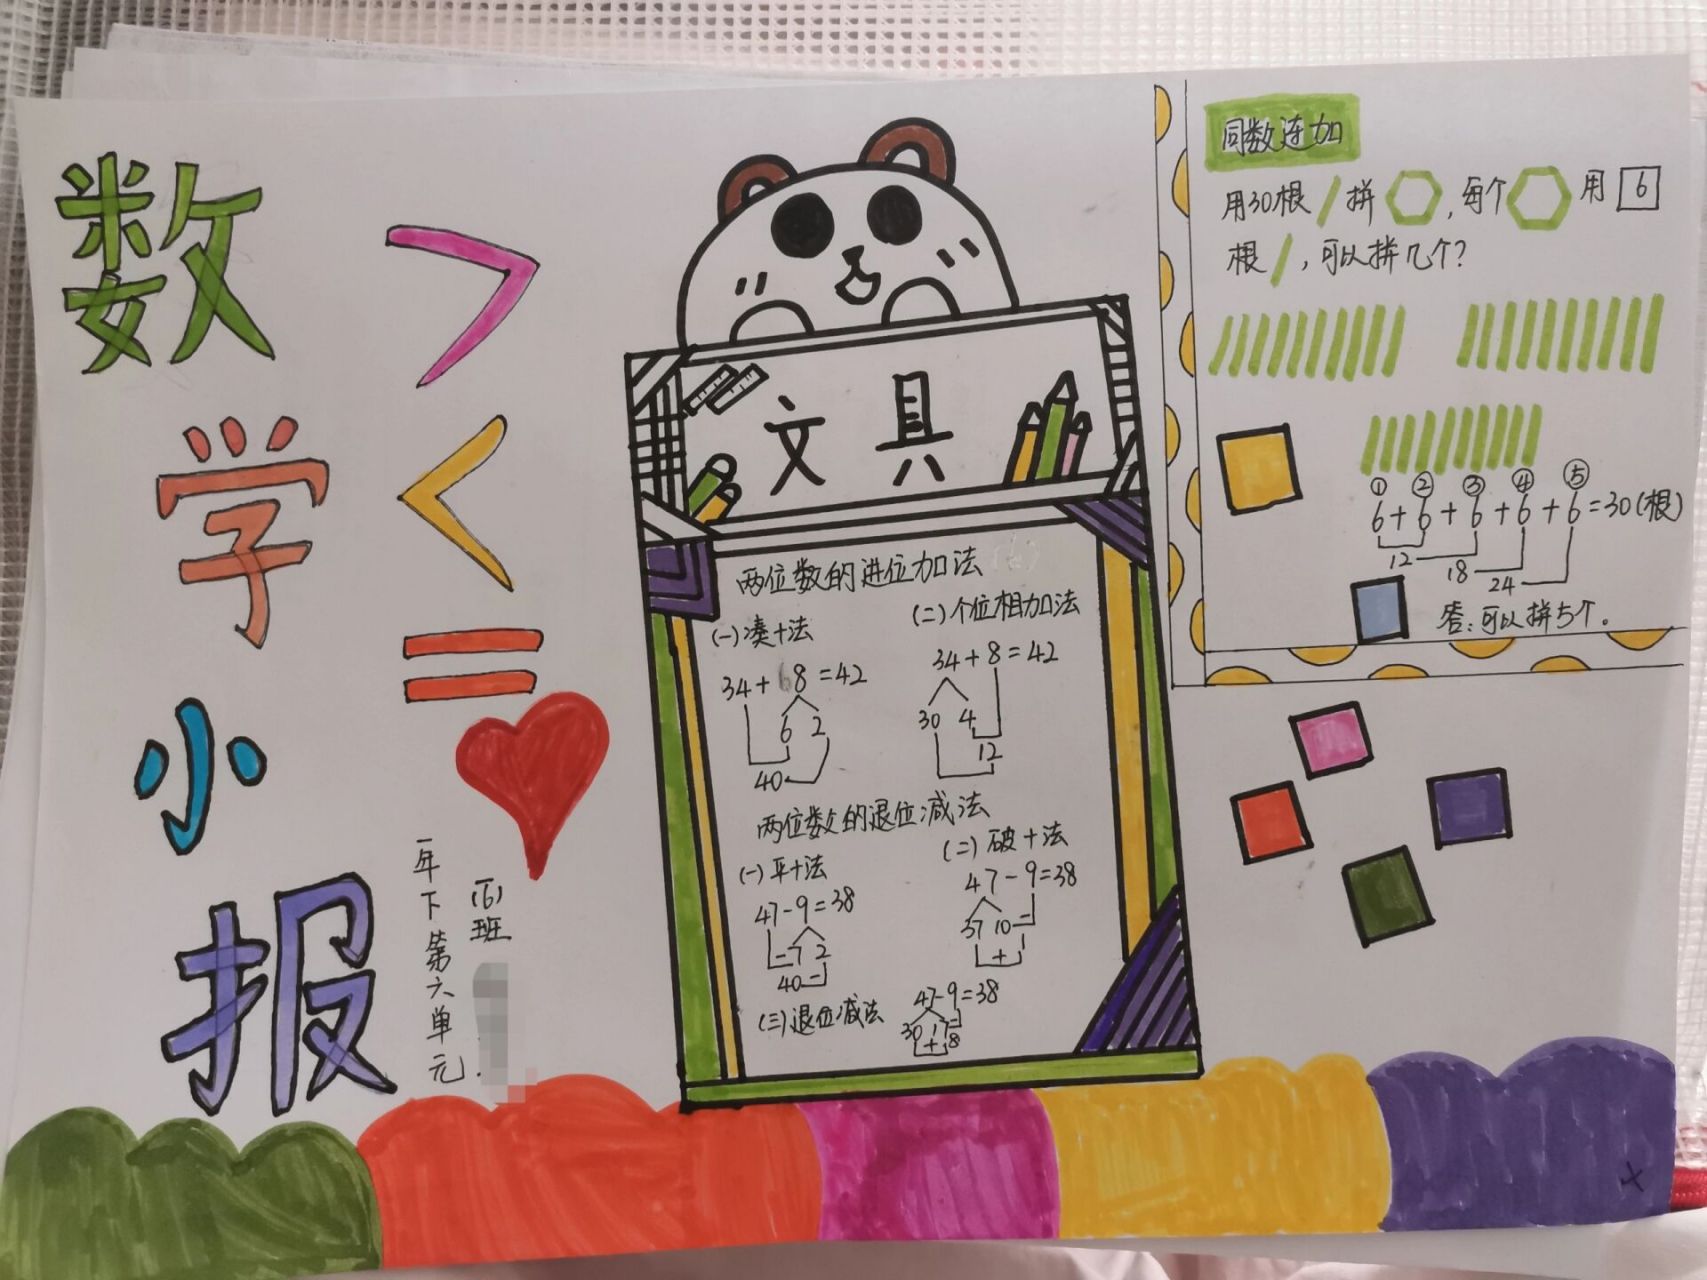 数学小报
>
<
=
一年下第六单元.
(6)班
文具
两位数的进位加法
(一)凑十法
34+8=42
6 2
40
(二)个位相加法
34+8=42
30 4
12
两位数的退位减法
(一)平十法
47-9=38
7 2
40
(二)破十法
47-9=38
37 10
+
(三)退位减法
47-9=38
30 17
+ 8
同数连加
用30根/拼⬡,每个⬡用6
根/,可以拼几个?
① ② ③ ④ ⑤
6+6+6+6+6=30(根)
12
18
24
答:可以拼5个。